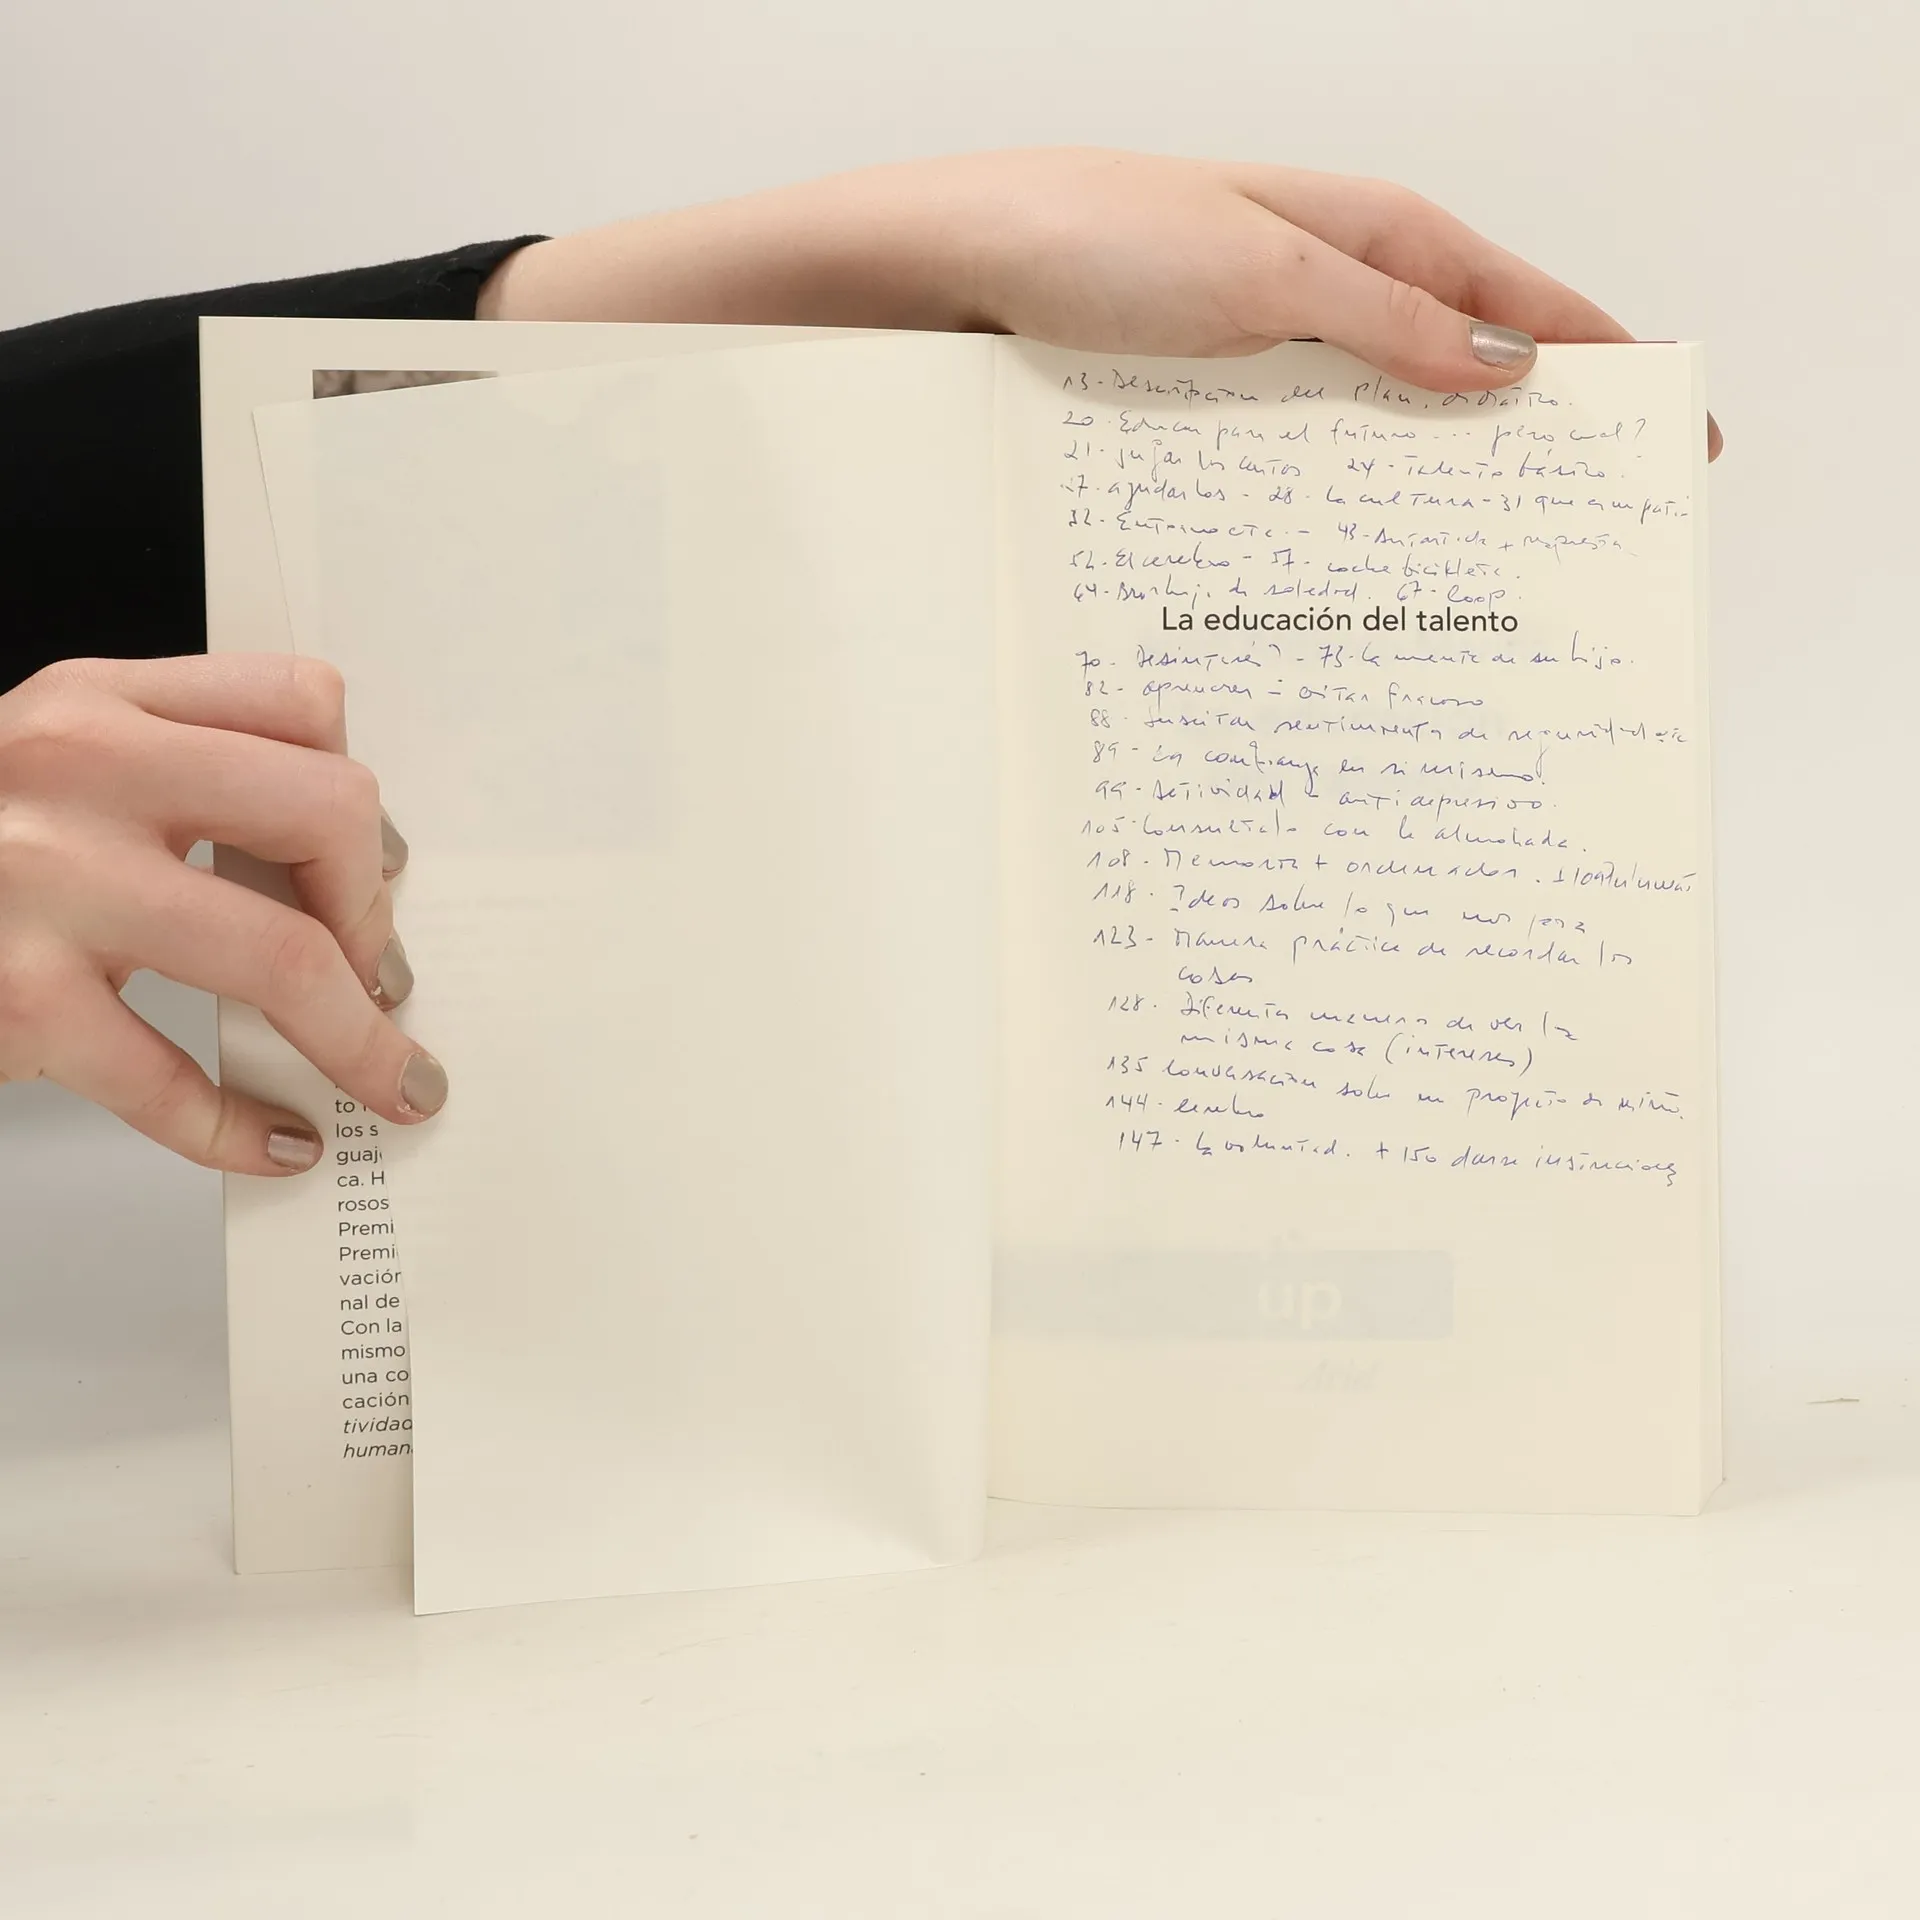 to
los s
guaj
ca. H
rosos
Premi
Premi
vación
nal de
Con la
mismo
una co
cación
tividad
human
13 - Descripcion del plan,
20 - Educar para el futuro ... pero cual?
21 - jugar las cartas 24 - Talento básico.
27 - ayudarlos - 28 - La cultura - 31 que
32 - Entorno etc. - 43 - + respuesta
52 - El cerebro - 57 - coche bicikleta.
64 - Burbuja de soledad. 67 - loop.
La educación del talento
70 - Desinterés? - 73 - La mente de su hijo.
82 - aprender = evitar fracaso
88 - suscitar sentimiento de seguridad etc
89 - La confianza en si mismo.
99 - Actividad = antidepresivo.
105 - Consultalo con la almohada.
108 - Memoria + ordenador.
118 - Ideas sobre lo que nos pasa
123 - Manera práctica de recordar las
cosas
128 - Diferentes maneras de ver la
misma cosa (intereses)
135 Conversación sobre un proyecto de
144 - cerebro
147 - La voluntad. + 150 darse instrucciones
up